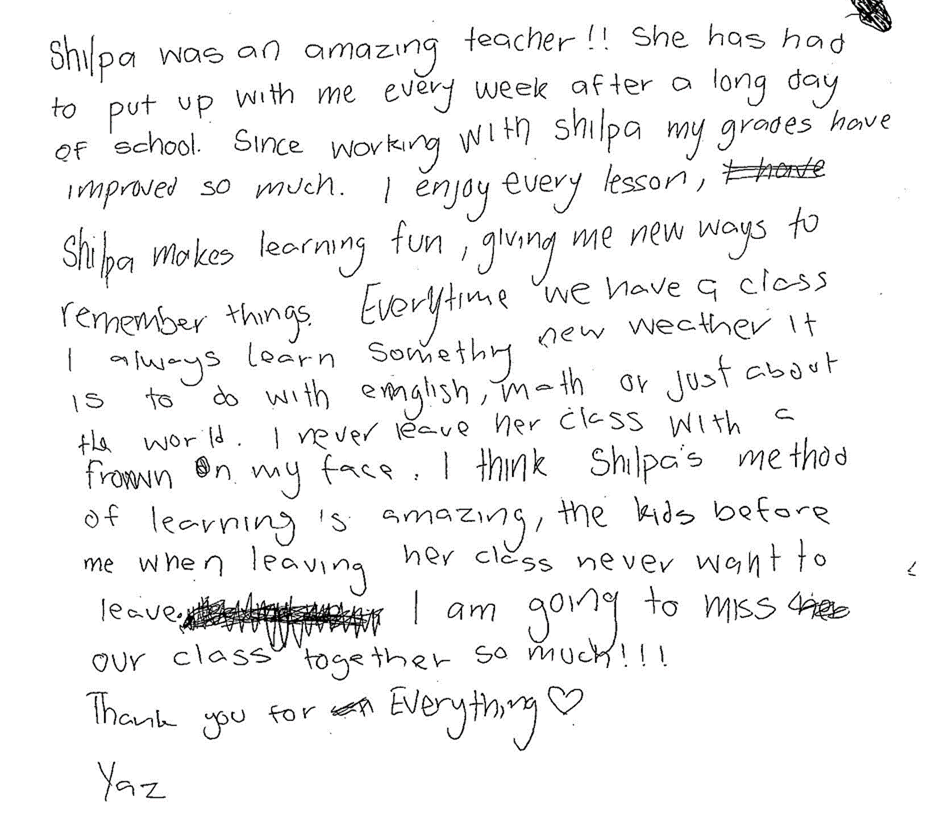 Shilpa was an amazing teacher!! She has had
to put up with me every week after a long day
of school. Since working with Shilpa my grades have
improved so much. I enjoy every lesson, I have
Shilpa makes learning fun, giving me new ways to
remember things. Everytime we have a class
I always learn somethng new weather it
is to do with emglish, math or just about
the world. I never leave her class with a
frown on my face. I think Shilpa's method
of learning is amazing, the kids before
me when leaving her class never want to
leave. I am going to miss
our class together so much!!!
Thank you for Everything ♡
Yaz